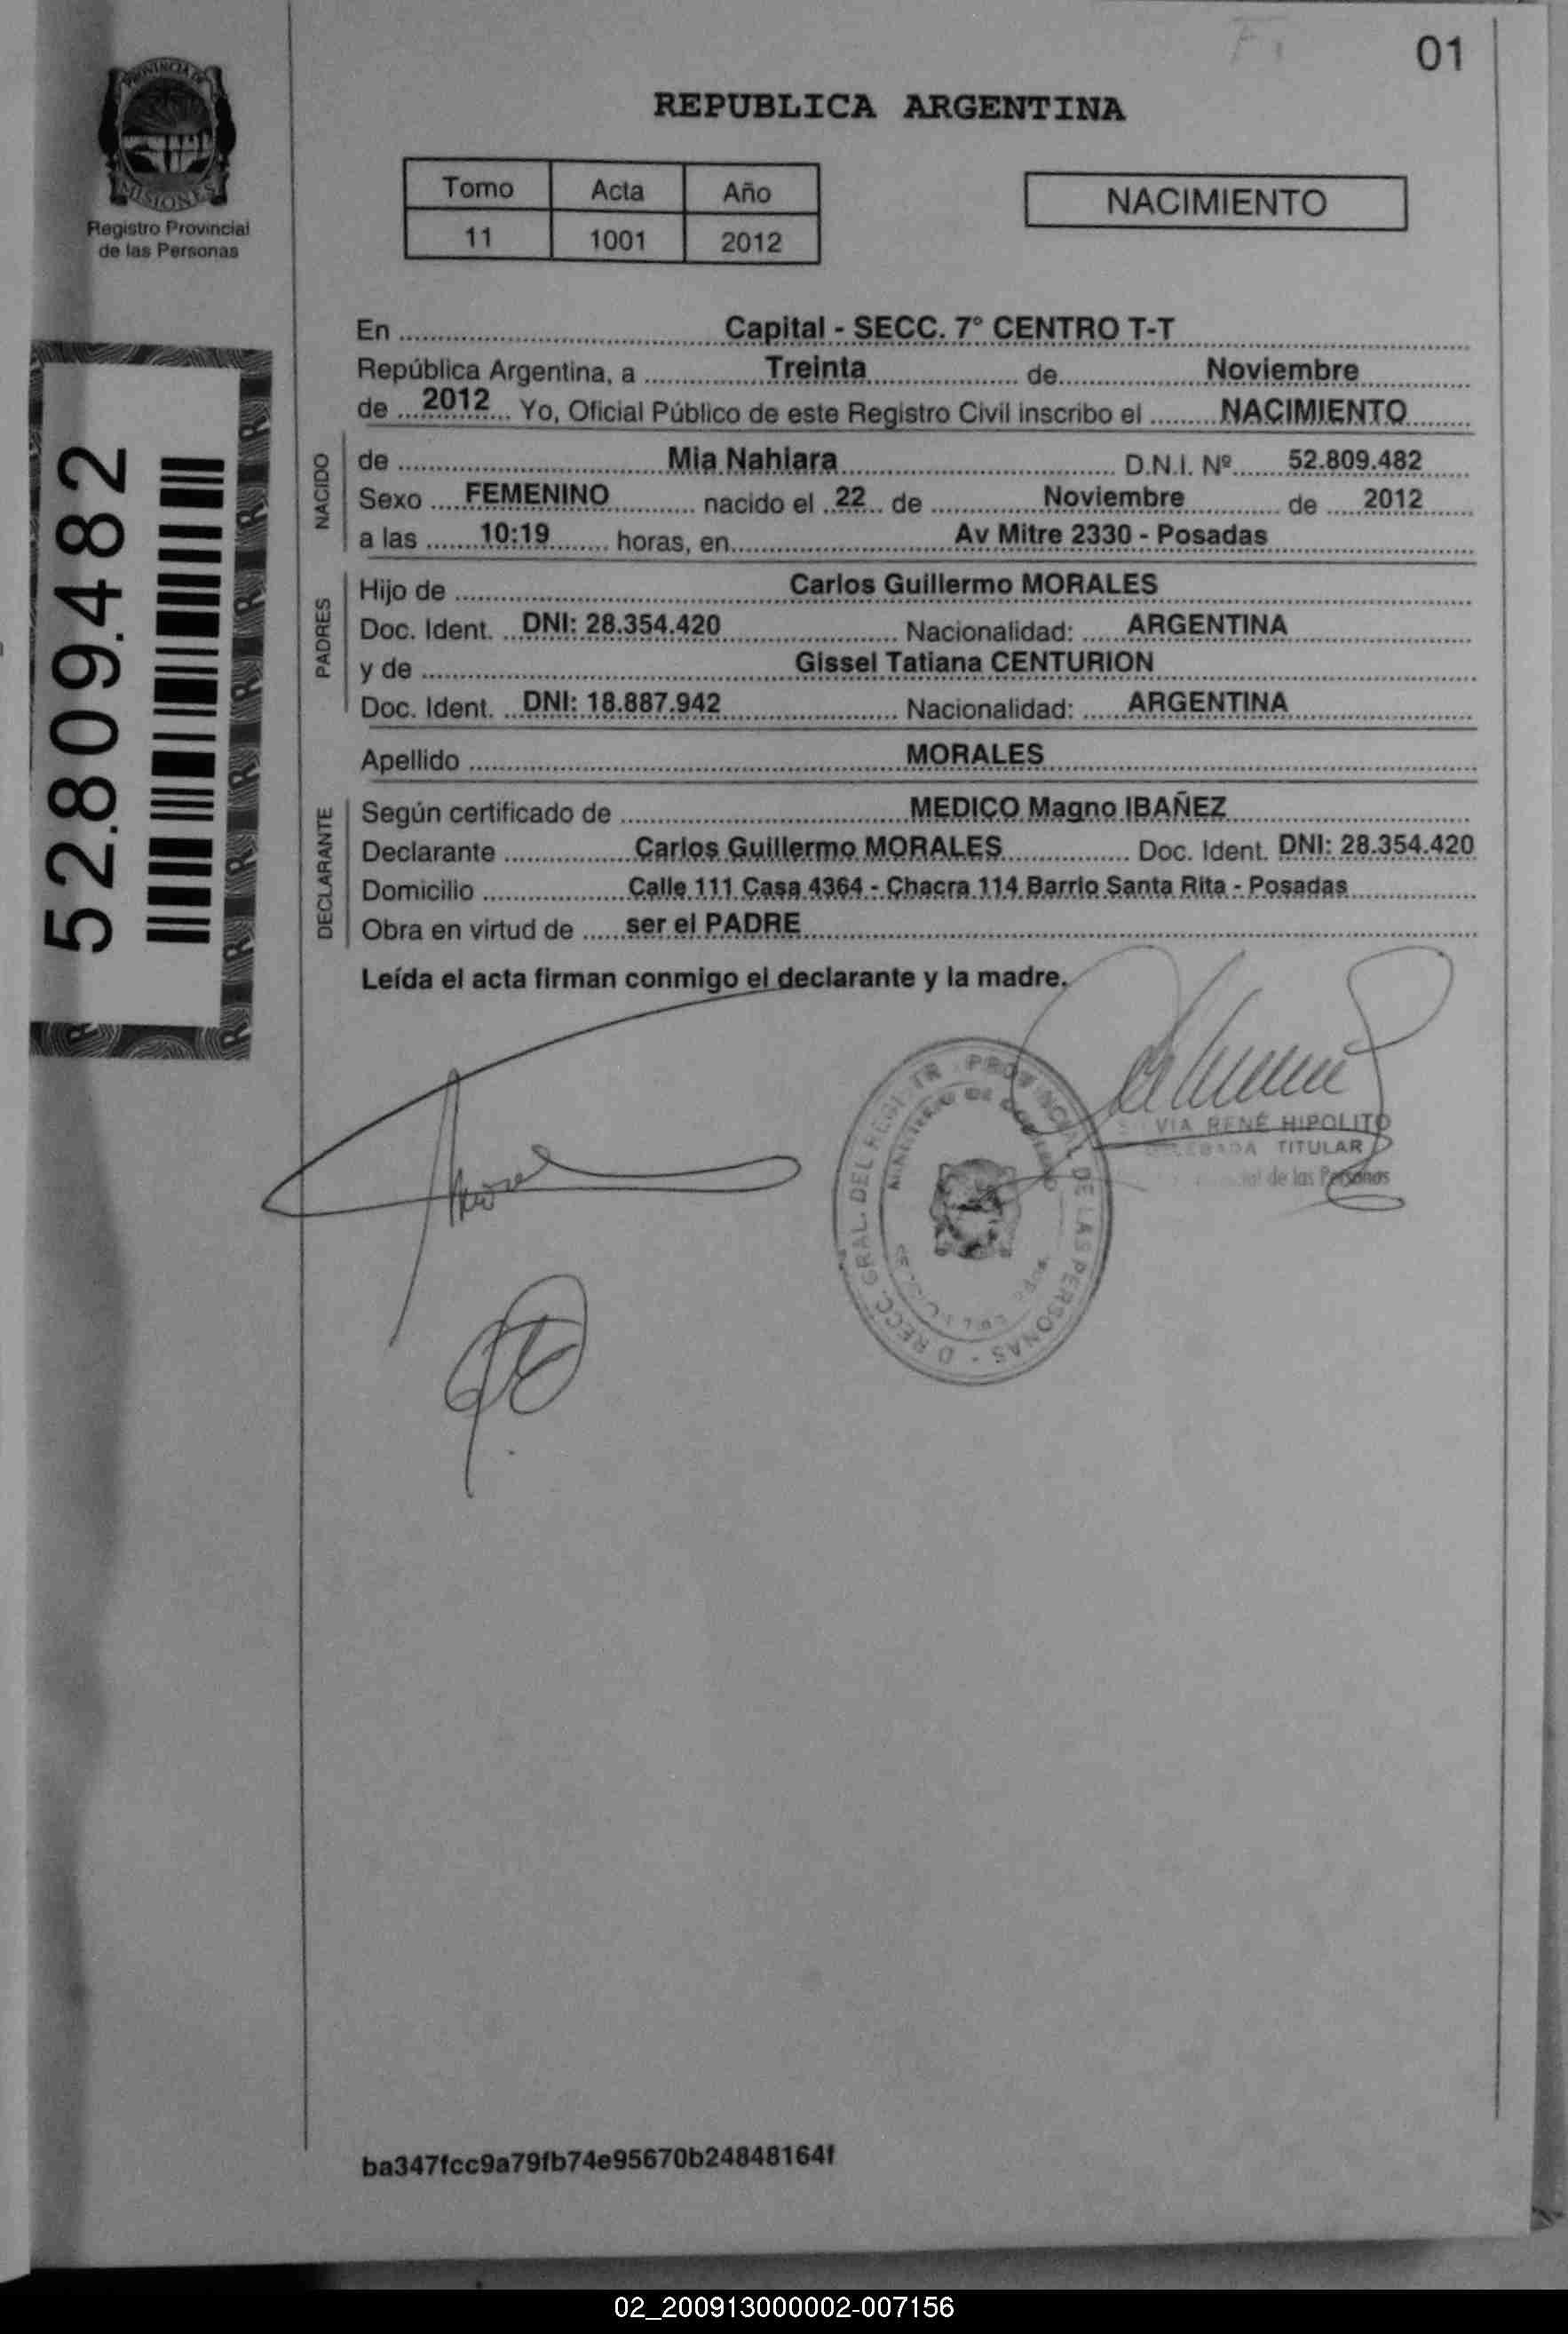 01
REPUBLICA ARGENTINA
PROVINCIA DE
MISIONES
Registro Provincial
de las Personas
Tomo Acta Año
11 1001 2012
NACIMIENTO
52.809.482
En Capital - SECC. 7° CENTRO T-T
República Argentina, a Treinta de Noviembre
de 2012 Yo, Oficial Público de este Registro Civil inscribo el NACIMIENTO
NACIDO
de Mia Nahiara D.N.I. Nº 52.809.482
Sexo FEMENINO nacido el 22 de Noviembre de 2012
a las 10:19 horas, en Av Mitre 2330 - Posadas
PADRES
Hijo de Carlos Guillermo MORALES
Doc. Ident. DNI: 28.354.420 Nacionalidad: ARGENTINA
y de Gissel Tatiana CENTURION
Doc. Ident. DNI: 18.887.942 Nacionalidad: ARGENTINA
Apellido MORALES
DECLARANTE
Según certificado de MEDICO Magno IBAÑEZ
Declarante Carlos Guillermo MORALES Doc. Ident. DNI: 28.354.420
Domicilio Calle 111 Casa 4364 - Chacra 114 Barrio Santa Rita - Posadas
Obra en virtud de ser el PADRE
Leída el acta firman conmigo el declarante y la madre.
RENÉ HIPOLITO
TITULAR
de las Personas
GRAL. DEL PROVINCIAL DE LAS PERSONAS
MINISTERIO DE GOBIERNO
ba347fcc9a79fb74e95670b24848164f
02_200913000002-007156